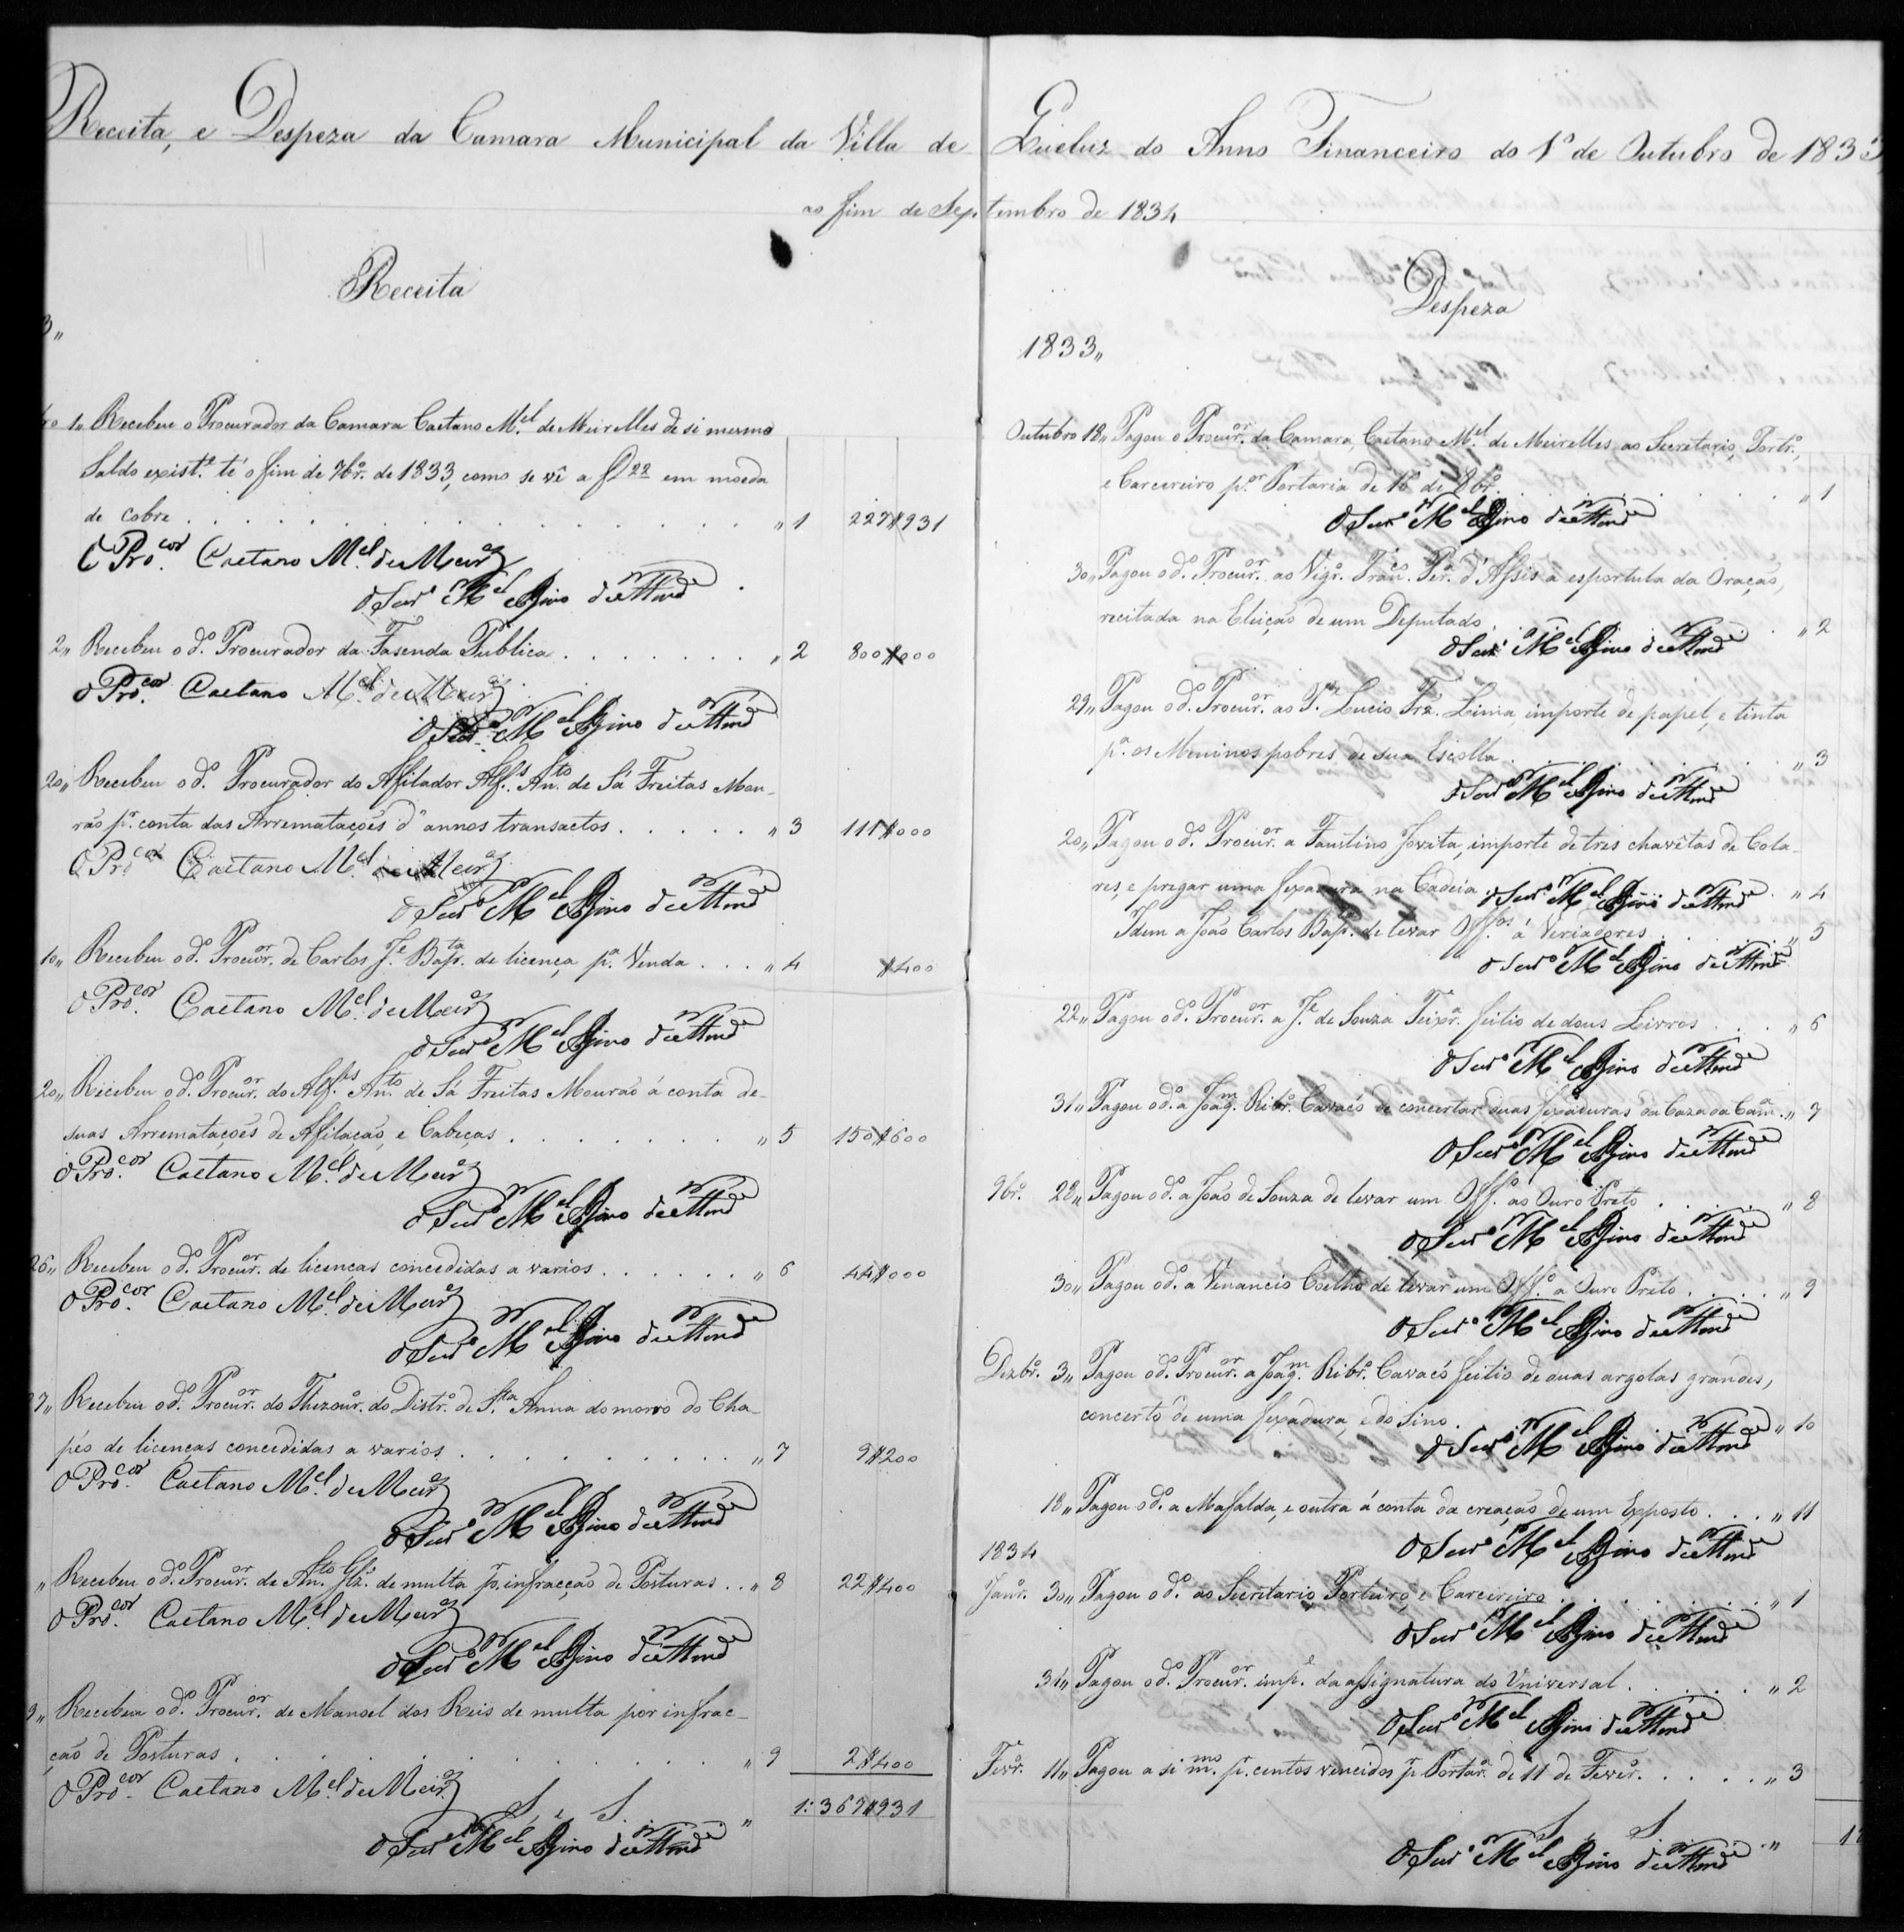 Receita, e Despeza da Camara Municipal da Villa de Queluz do Anno Financeiro do 1º de Outubro de 1833
ao fim de Septembro de 1834
Receita
3„
ro 1„ Recebeu o Procurador da Camara Caetano M.el de Meirelles de si mesmo
Saldo exist.e té o fim de 7br.º de 1833, como se vê a f 22 em moeda
de cobre . . . „ 1 227$931
O Pro.cor Caetano M.el de Meir.es
O Secr.o M.el
2„ Recebeu o d.º Procurador da Fasenda Publica . . . „ 2 800$000
O Pro.cor Caetano M.el de Meir.es
O Secr.o M.el
20„ Recebeu o d.º Procurador do Afilador Alf.s An.to de Sá Freitas Mou-
rão p.r conta das Arrematações d' annos transactos . . . „ 3 111$000
O Pro.cor Caetano M.el de Meir.es
O Secr.o M.el
10„ Recebeu o d.º Procur.or de Carlos J.e Bap.ta de licença p.a Venda . . . „ 4 $400
O Pro.cor Caetano M.el de Meir.es
O Secr.o M.el
20„ Recebeu o d.º Procur.or do Alf.es An.to de Sá Freitas Mourão á conta de
suas Arrematações de Afilação, e Cabeças . . . „ 5 150$600
O Pro.cor Caetano M.el de Meir.es
O Secr.o M.el
26„ Recebeu o d.º Procur.or de licenças concedidas a varios . . . „ 6 44$000
O Pro.cor Caetano M.el de Meir.es
O Secr.o M.el
27„ Recebeu o d.º Procur.or do Thezour.º do Distr.º de S.ta Anna do morro do Cha-
péo de licenças concedidas a varios . . . „ 7 9$200
O Pro.cor Caetano M.el de Meir.es
O Secr.o M.el
„ Recebeu o d.º Procur.or de An.to Glz.' de multa p.r infracção de Posturas . . „ 8 22$400
O Pro.cor Caetano M.el de Meir.es
O Secr.o M.el
9„ Recebeu o d.º Procur.or de Manoel dos Reis de multa por infrac-
ção de Posturas . . . „ 9 2$400
O Pro.cor Caetano M.el de Meir.es
S. e S. „ 1:367$931
O Secr.o M.el
Despeza
1833„
Outubro 18„ Pagou o Procur.or da Camara, Caetano M.el de Meirelles ao Secretario, Portr.º,
e Carcereiro p.or Portaria de 16 de 8br.º . . . „ 1
O Secr.o M.el
30„ Pagou o d.º Procur.or ao Vigr.º Fran.co Per.a d'Assis a esportula da Oração,
recitada na Eleição de um Deputado . . . „ 2
O Secr.o M.el
29„ Pagou o d.º Procur.or ao P.e Lucio Frz.' Lima, importe de papel, e tinta
p.a os Meninos pobres de sua Escolla . . . „ 3
O Secr.o M.el
20„ Pagou o d.º Procur.or a Faustino Jovita, importe de tres chavêtas de Cola-
res, e pregar uma fexadura na Cadeia . . „ 4
O Secr.o M.el
Idem a João Carlos Bap. de levar Off.os á Veriadores . . . „ 5
O Secr.o M.el
22„ Pagou o d.º Procur.or a J.e de Souza Teixr.a feitio de dous Livros . . . „ 6
O Secr.o M.el
31„ Pagou o d.º a Joaq.m Ribr.º Cavacó de concertar duas fexaduras da Caza da Cam.a „ 7
O Secr.o M.el
9br.º 28„ Pagou o d.º a João de Souza de levar um Off.º ao Ouro Preto . . . „ 8
O Secr.o M.el
30„ Pagou o d.º a Venancio Coelho de levar um Off.º a Ouro Preto . . . „ 9
O Secr.o M.el
Dezbr.º 3„ Pagou o d.º Procur.or a Joaq.m Ribr.º Cavacó feitio de duas argolas grandes,
concerto de uma fexadura, e do Sino . „ 10
O Secr.o M.el
18„ Pagou o d.º a Mafalda, e outra á conta da creação de um Exposto . . . „ 11
O Secr.o M.el
1834
Janr.º 30„ Pagou o d.º ao Secretario, Porteiro, e Carcereiro . . . „ 1
O Secr.o M.el
31„ Pagou o d.º Procur.or imp.e da assignatura do Universal . . . „ 2
O Secr.o M.el
Fevr.º 11„ Pagou a si m.mo p.r centos vencidos p.r Portar.a de 11 de Fever.º . . . „ 3
S. e S. „ 1
O Secr.o M.el